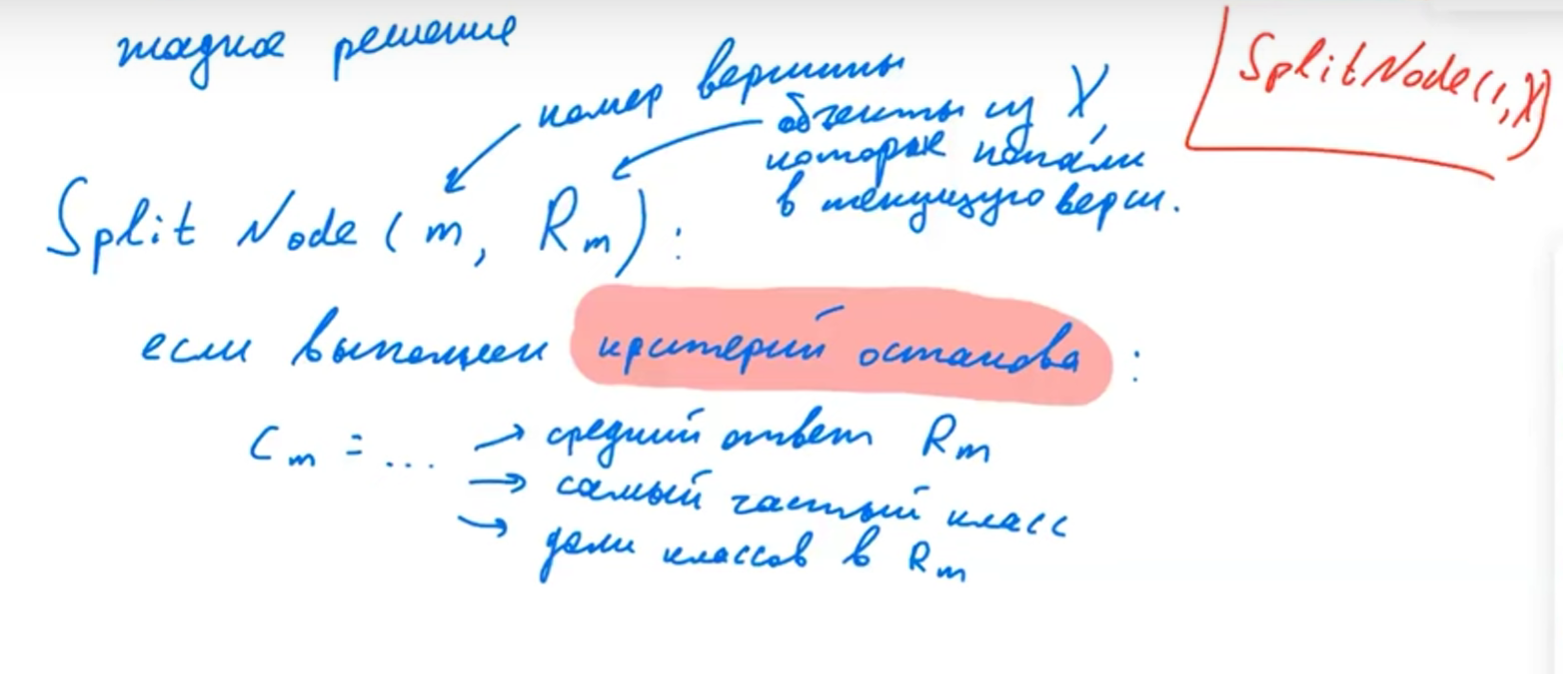 жадное решение
номер вершины
объекты из X,
которые попали
в текущую верш.
SplitNode(1, X)
Split Node (m, Rm):
если выполнен критерий останова:
Cm = ... → средний ответ Rm
→ самый частый класс
→ доли классов в Rm